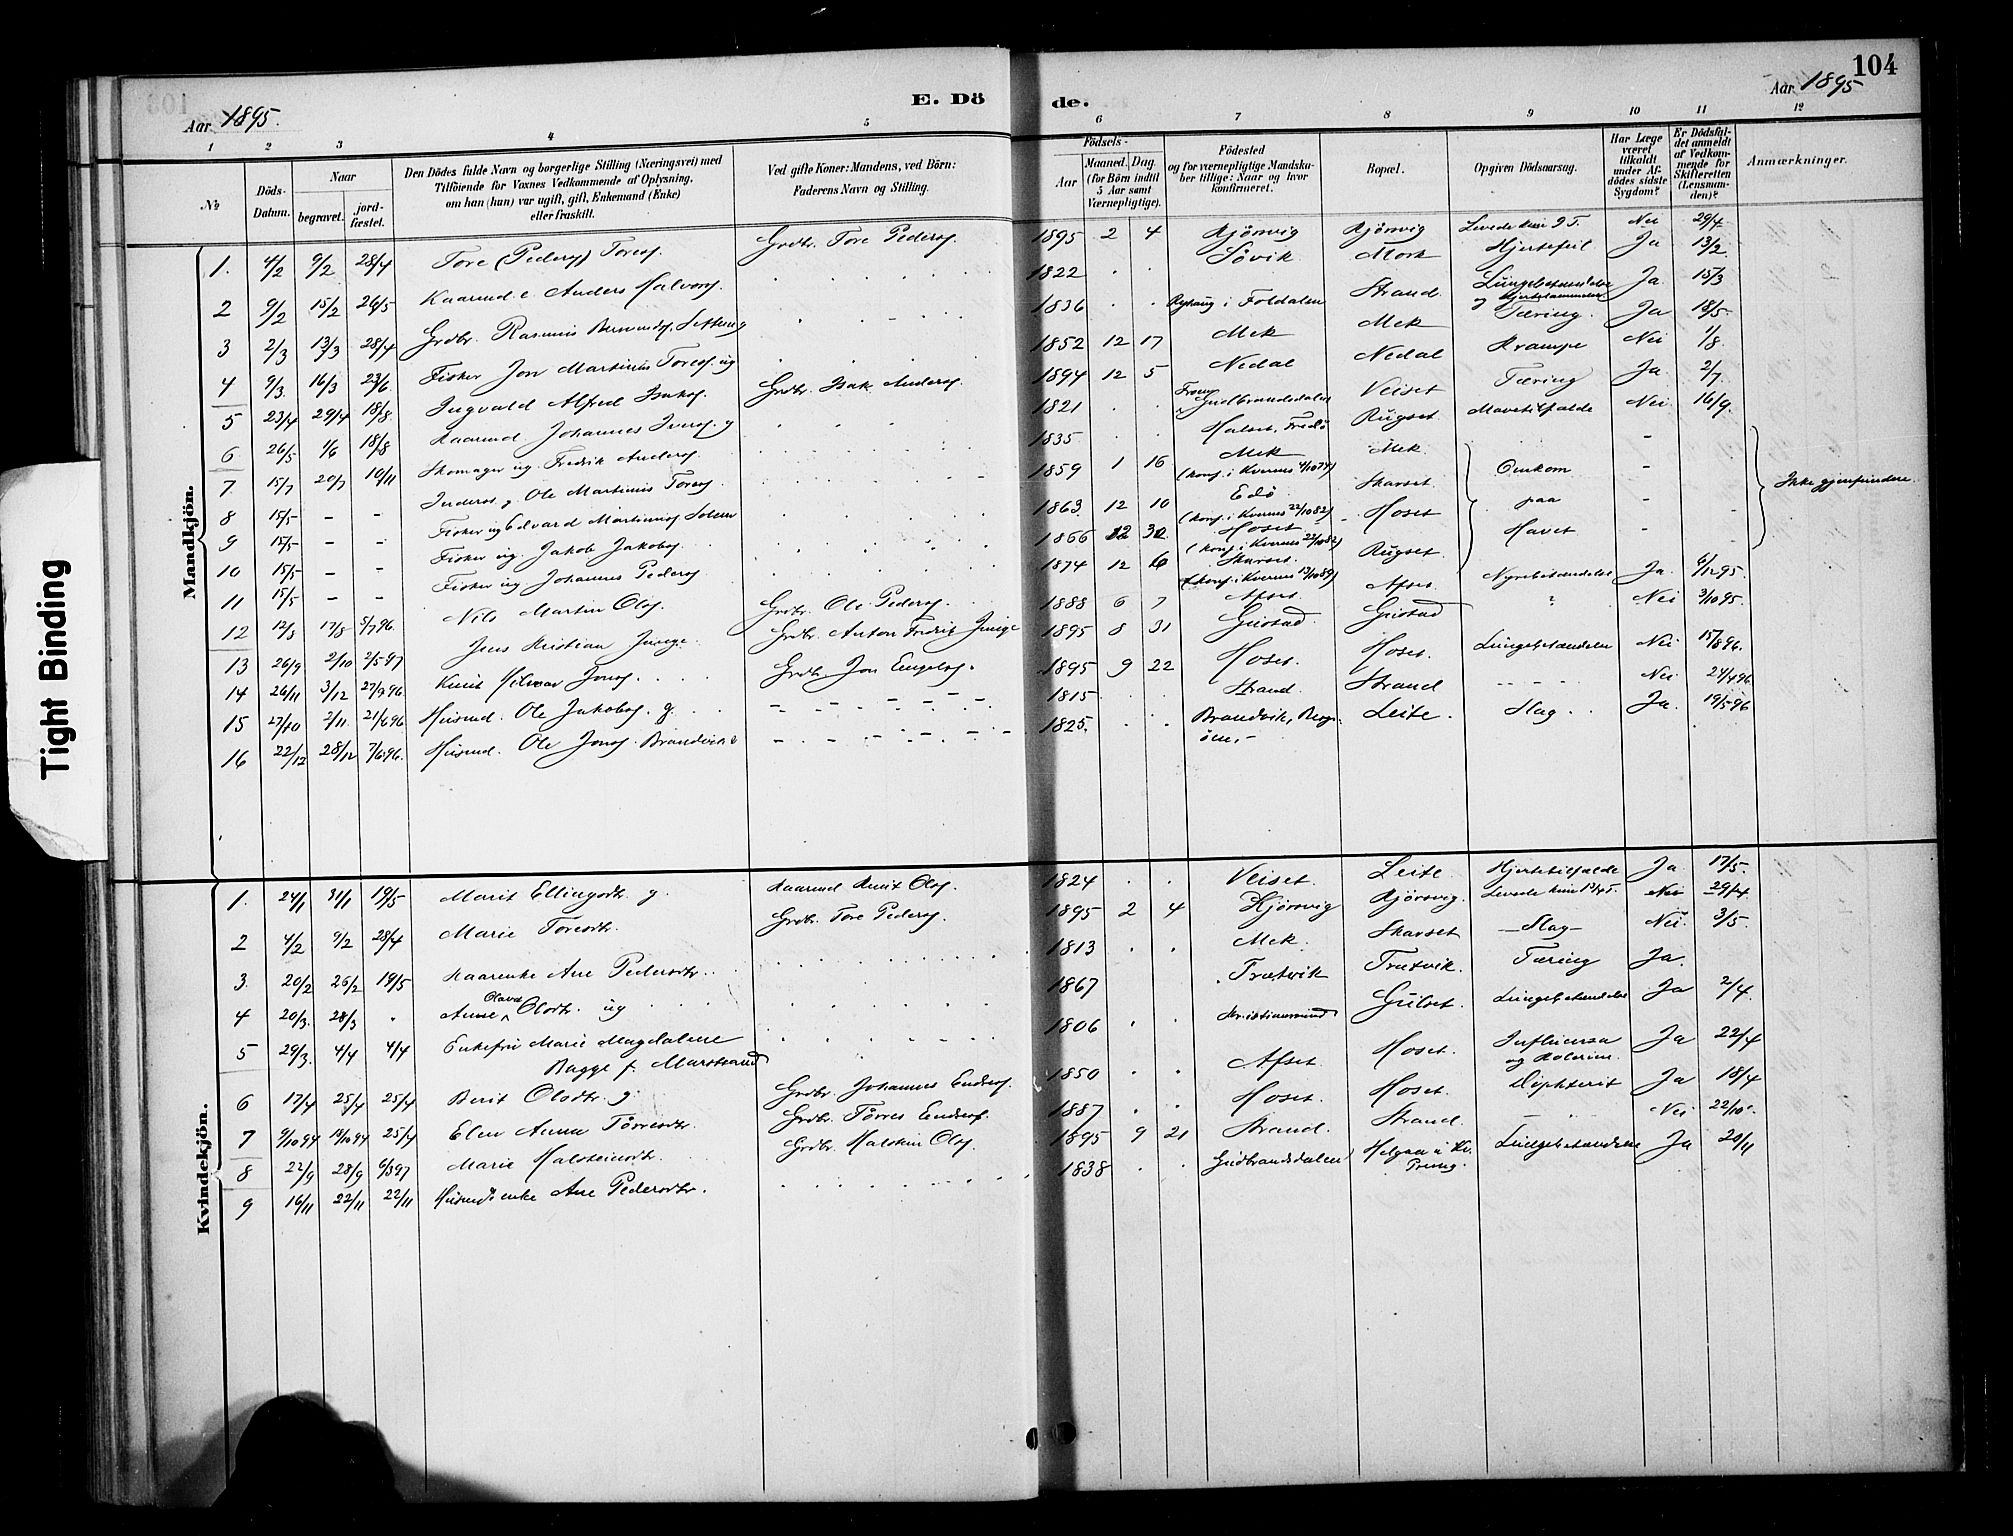 104
Aar 1895.
E. Döde.
Aar 1895
1 2 3 4 5 6 7 8 9 10 11 12
№
Döds-Datum.
Naar begravet. jordfæstet.
Den Dödes fulde Navn og borgerlige Stilling (Næringsvei) med Tilföiende for Voxnes Vedkommende af Oplysning, om han (hun) var ugift, gift, Enkemand (Enke) eller fraskilt.
Ved gifte Koner: Mandens, ved Börn: Faderens Navn og Stilling.
Födsels- Aar Maaned. Dag. (for Börn indtil 5 Aar samt Værnepligtige).
Födested og for værnepligtige Mandskaber tillige: Naar og hvor konfirmeret.
Bopæl.
Opgiven Dödsaarsag.
Har Læge været tilkaldt under Afdödes sidste Sygdom?
Er Dödsfaldet anmeldt af Vedkommende for Skifteretten (Lensmanden)?
Anmærkninger.
Mandkjön.
1. 4/2 9/2 28/4 Tore (Peders) Tores. Grdbr. Tore Peders. 1895 2 4 Kjörsvig Kjörsvig Levede kun 9 T. Nei 29/4
2 9/2 15/2 26/5 Kaarmd. e. Anders Halvors. 1822 Sövik Mork Hjertefeil Ja 13/2
3 2/3 13/3 28/4 Grdbr. Rasmus g 1836 i Foldalen Strand Lungebetændelse og Ja 15/3
4 9/3 16/3 23/6 Fisker Jon Martinus Tores. ug 1852 12 17 Mek Mek Tæring. Ja 18/5
5 23/4 29/4 18/8 Ingvald Alfred Isaks. Grdbr. Isak Anders. 1894 12 5 Nedal Nedal Krampe Nei 1/8
6 26/5 1/6 18/8 Kaarmd Johannes Ivers. g 1821 Gudbrandsdalen Veiset Tæring Ja 2/7
7 15/7 20/7 10/11 Skomager ug. Fredrik Anders. 1835 Halset, Fredö Rugset Mavetilfælde Nei 16/9
8 15/5 – – Inderst g. Ole Martinus Tores. 1859 1 16 Mek (konf. i Kvernes 4/10 74) Mek Omkom –
9 15/5 – – Fisker ug Edvard Martinus 1863 12 10 Edö (konf. i Kvernes 22/10 82) Skarset paa –
10 15/5 – – Fisker ug. Jakob Jakobs. 1866 12 Hoset (konf. i Kvernes 22/10 82) Hoset Havet –
11 15/5 – – Fisker ug. Johannes Peders. 1874 12 6 Skarset (konf. i Kvernes 13/10 89) Rugset
Ikke gjenfundne.
12 12/8 17/8 5/7 96. Nils Martin Ols. Grdbr. Ole Peders. 1888 6 7 Afset Afset Nyrebetændelse Ja 6/12 95.
13 26/9 2/10 2/5 97 Jens Kristian Junge. Grdbr. Anton Fredrig Junge 1895 8 31 Gustad Gustad ? Nei 3/10 95.
14 26/11 3/12 27/9 96 Knut Jons. Grdbr. Jon Engels. 1895 9 22 Hoset. Hoset. Lungebetændelse Nei 15/8 96.
15 27/10 2/11 21/6 96 Husmd. Ole Jakobs. g. 1815 Strand. Strand Nei 24/4 96
16 22/12 28/12 7/6 96. Husmd. Ole Jons. Brandvik 1825. Brandvik, Leite. Slag Ja. 19/5 96
Kvindekjön.
1. 24/1 31/1 19/5 Marit Ellingsdtr. g Kaarmd Knut Ols. 1824 Veiset. Leite. Hjertetilfælde Ja 17/5.
2 4/2 9/2 28/4 Marie Toresdtr. Grdbr. Tore Peders. 1895 2 4 Kjörsvig Kjörsvig. Levede kun Nei 29/4
3 20/2 26/2 19/5 Kaarenke Ane Pedersdtr. 1813 Mek. Skarset – Slag – Nei. 3/5.
4 20/3. 28/3 Anne Olava Olsdtr. ug 1867 Trætvik Trætvik. Tæring Ja.
5 29/3. 4/4 4/4 Enkefru Marie Magdalene Bagge f. Marstrand 1806 Kristianssund Gulset. Lungebetændelse Ja 2/4.
6 17/4 25/4 25/4 Berit Olsdtr. g Grdbr. Johannes Enders. 1850 Afset Hoset. Influensa og Ja 22/4
7 9/10 94 14/10 94 25/4 Elen Anna Törresdtr. Grdbr. Törres Enders. 1887 Hoset. Hoset. Diphterit Ja 18/4
8 22/9 28/9 6/3 97 Marie Halsteinsdtr. Grdbr. Halstein Ols. 1895 9 21 Strand. Strand. Nei 22/10.
9 16/11 22/11 22/11 Husmdsenke Ane Pedersdtr. 1838 Gudbrandsdalen Lungebetændelse Ja 20/11
Tight Binding